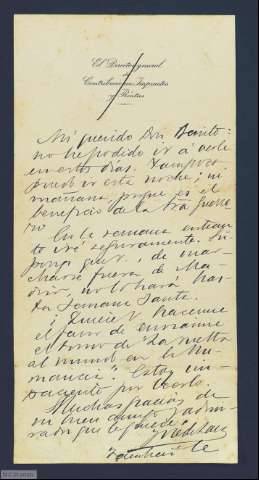 El Director general
de
Contribuciones, Impuestos
y Rentas
Mi querido Don Benito:
no he podido ir á verle
en estos días. Tampoco
puedo ir esta noche; ni
mañana, porque es el
beneficio de la
En la semana entrante
iré seguramente. Su-
pongo que V. de mar-
charse fuera de Ma-
drid, no lo hará has-
ta Semana Santa.
¿Quiere V. hacerme
el favor de enviarme
el tomo de "La vuelta
al mundo en la Nu-
mancia"? Estoy im-
paciente por leerlo.
Muchas gracias de
su buen amigo y admi-
rador que le quiere